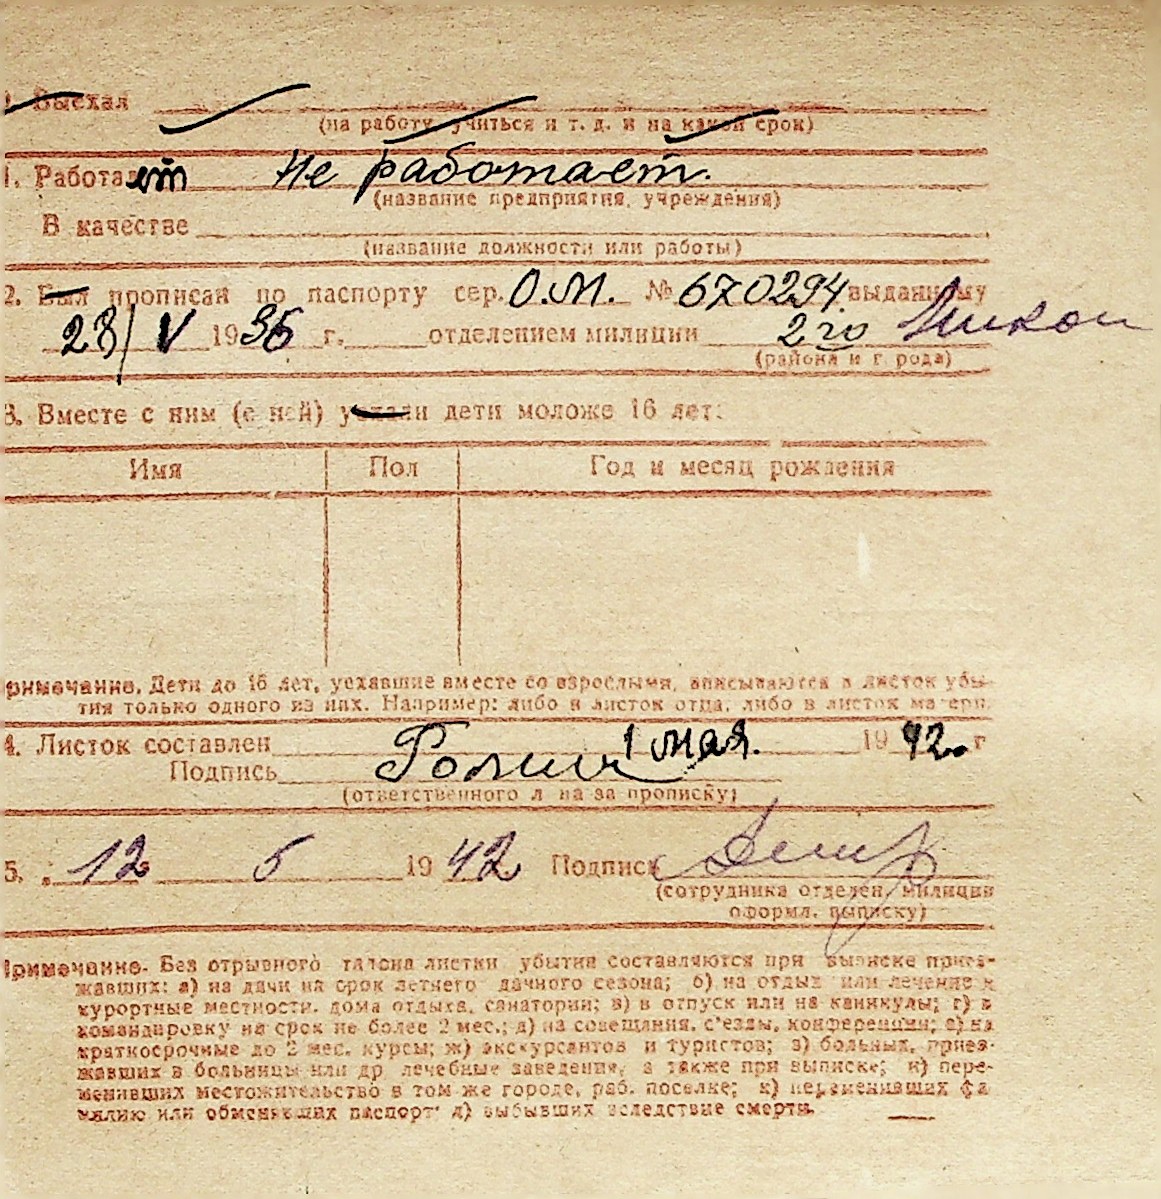 Выехал
(на работу, учиться и т. д. и на какой срок)
1. Работает Не работает.
(название предприятия, учреждения)
В качестве
(название должности или работы)
2. Был прописан по паспорту сер. О.М. № 670294 выданному
28/V 1936 г. отделением милиции 2го
(района и города)
3. Вместе с ним (с ней) уехали дети моложе 16 лет:
Имя Пол Год и месяц рождения
римечание. Дети до 16 лет, уехавшие вместе со взрослыми, вписываются в листок убы-
тия только одного из них. Например: либо в листок отца, либо в листок матери.
4. Листок составлен 1 мая. 1942. г
Подпись
(ответственного л на за прописку)
5. 12 5 1942 Подпись
(сотрудника отделен. милиции
оформл. выписку)
Примечание. Без отрывного талона листки убытия составляются при выписке приез-
жавших: а) на дачи на срок летнего дачного сезона; б) на отдых или лечение в
курортные местности, дома отдыха, санатории; в) в отпуск или на каникулы; г) в
командировку на срок не более 2 мес.; д) на совещания, с'езды, конференции; е) на
краткосрочные до 2 мес. курсы; ж) экскурсантов и туристов; з) больных, приез-
жавших в больницы или др лечебные заведения, а также при выписке; и) пере-
менивших местожительство в том же городе, раб. поселке; к) переменивших фа
милию или обменявших паспорт л) выбывших вследствие смерти.